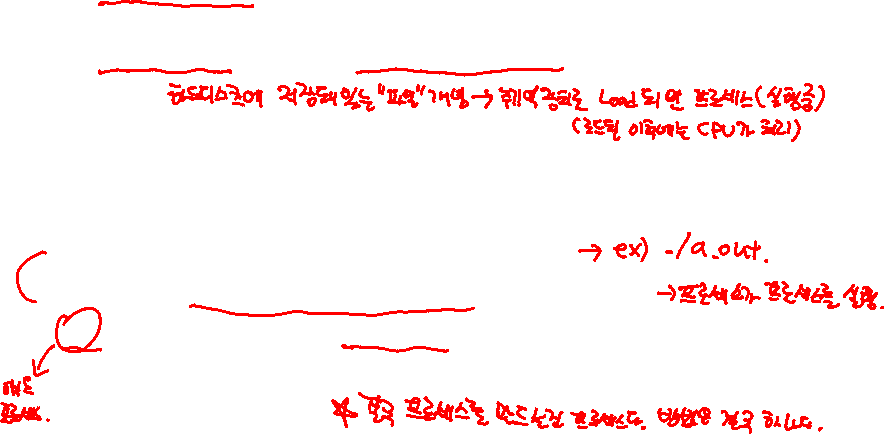 하드디스크에 저장돼있는 "파일" 개념 → 주기억장치로 Load 되면 프로세스(실행중)
(로드된 이후에는 CPU가 처리)
→ ex) ./a.out.
→ 프로세스가 프로세스를 실행.
프로세스.
* 결국 프로세스를 만드는건 프로세스다. 방법은 결국 하나다.